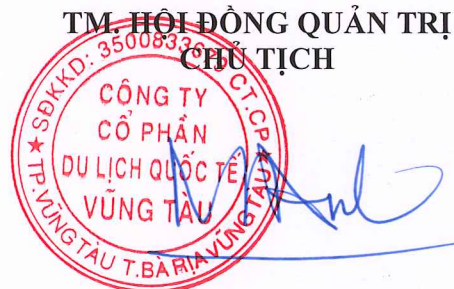 TM. HỘI ĐỒNG QUẢN TRỊ
CHỦ TỊCH
SĐKKD: CT.CP
CÔNG TY
CỔ PHẦN
DU LỊCH QUỐC TẾ
VŨNG TÀU
TP. VŨNG TÀU T.BÀ RỊA VŨNG TÀU